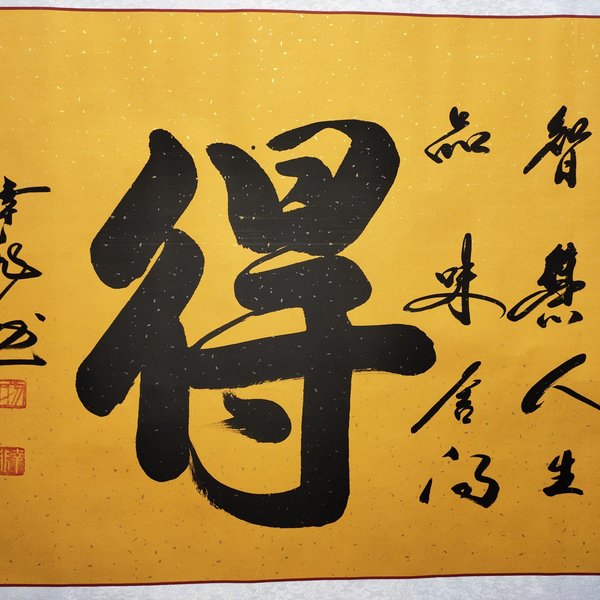 智慧人生
品味舍得
得